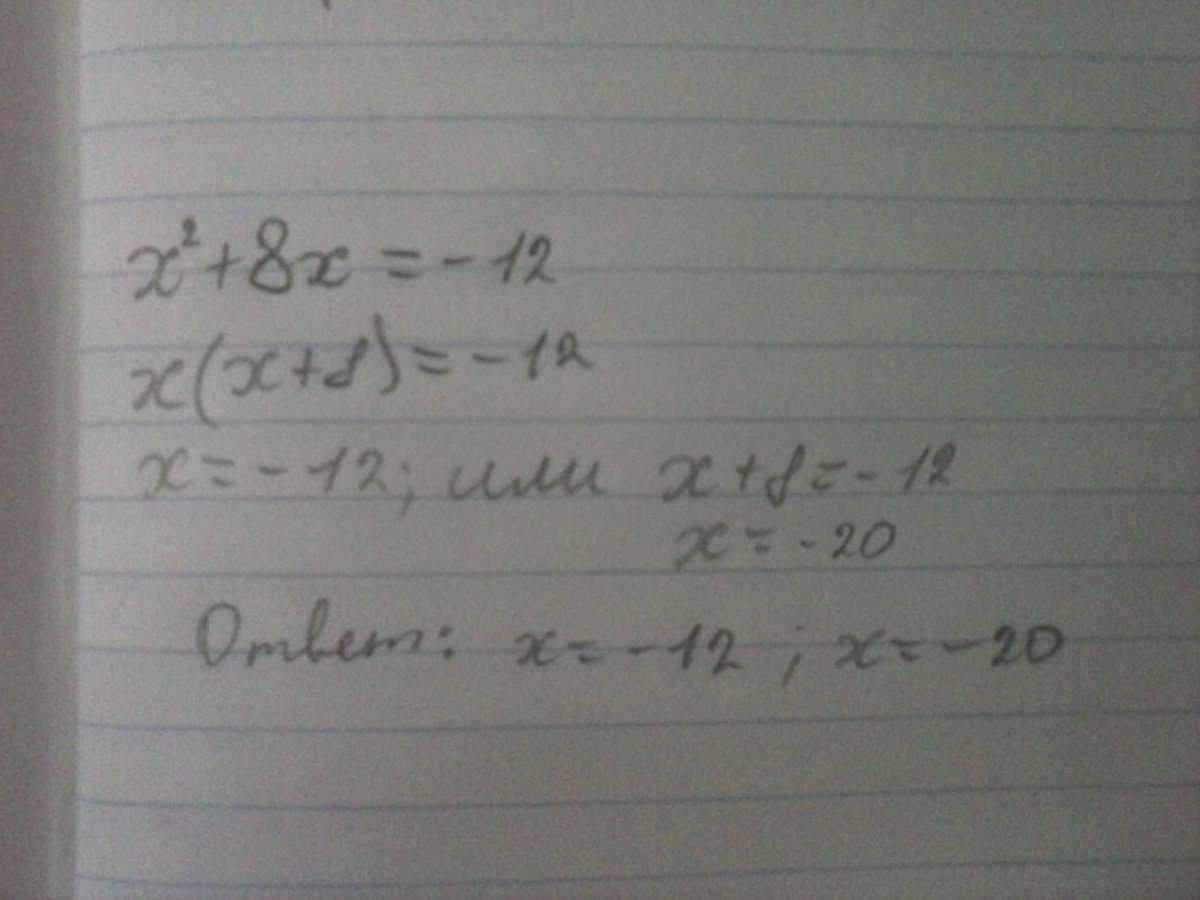 x²+8x=-12
x(x+8)=-12
x=-12; или x+8=-12
x=-20
Ответ: x=-12; x=-20